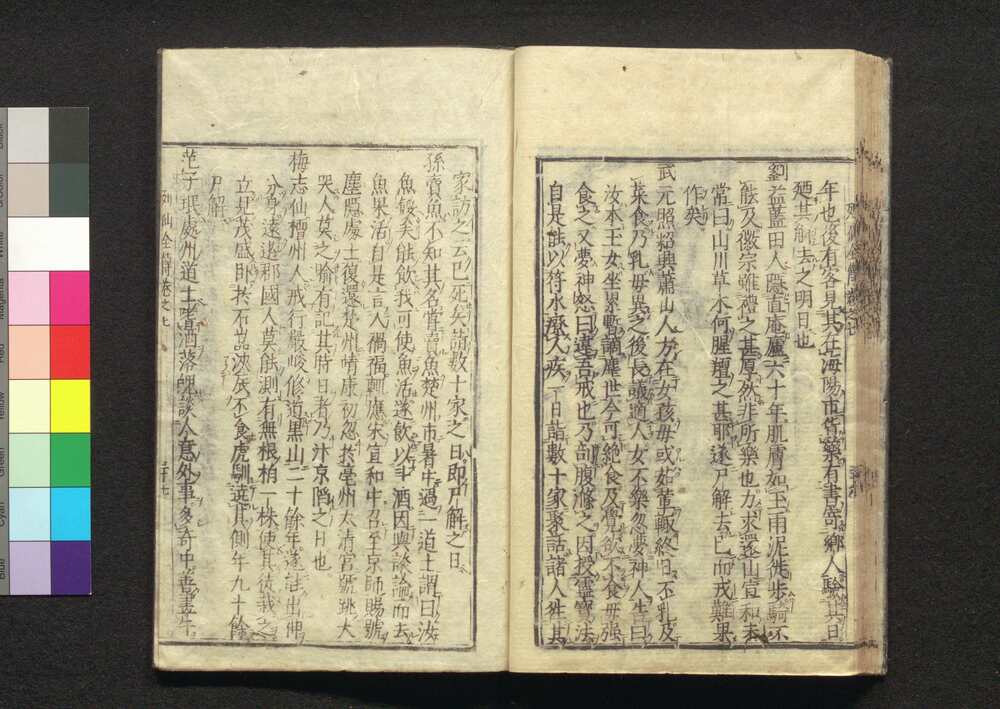 年也後有客見其在海陽市貨藥有書寄鄉人驗其日
廼其解去之明日也
劉益藍田人隱直庵廬六十年肌膚如玉雨泥徒步騎不
能及徽宗雖禮之甚厚然非所樂也力求還山宣和末
常曰山川草木何腥羶之甚耶遂尸解去已而戎難果
作矣
武元照紹興蕭山人方在女孩母或茹葷輒終日不乳及
菜食乃乳母異之後長議適人女不樂忽夢神人告曰
汝本玉女坐累暫謫塵世今可絕食及覺飲不食母強
食之又夢神怒曰違吾戒也乃剖腹滌之因授靈寶法
自是能以符水療人疾一日詣數十家聚話諸人往其
家訪之云已死矣詣數十家之日即尸解之日
孫賣魚不知其名嘗賣魚楚州市暑中過一道士謂曰汝
魚餒矣能飲我可使魚活遂飲以斗酒因與談論而去
魚果活自是言人禍福輒應宋宣和中召至京師賜號
塵隱處士復還楚州靖康初忽於亳州太清宮號跳大
哭人莫之喻有記其時日者乃汴京陷之日也
梅志仙檀州人戒行嚴峻修道黑山二十餘年遂諳出神
分身遠遊郡國人莫能測有無根柏一株使其徒栽之
立見茂盛卧於石崑泱辰不食虎馴遶其側年九十餘
尸解
范子珉處州道士嗜酒落魄談人意外事多奇中善畫牛
列仙全傳卷之七
三十七